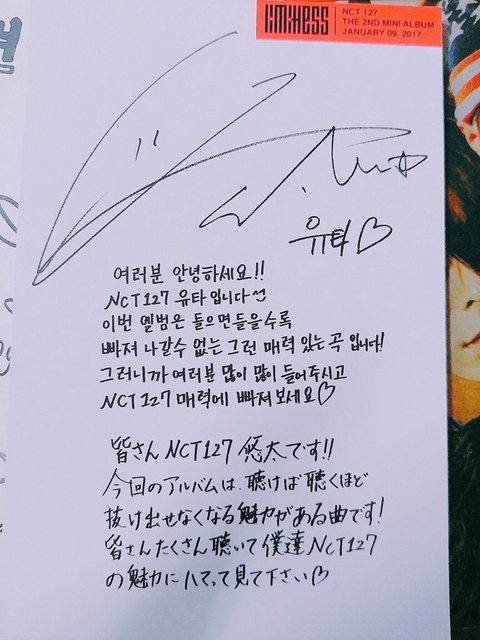 LIMITLESS
NCT 127
THE 2ND MINI ALBUM
JANUARY 09, 2017
유타♡
여러분 안녕하세요!!
NCT 127 유타입니다
이번 엘범은 들으면들을수록
빠져 나갈수 없는 그런 매력 있는 곡 입니다!
그러니까 여러분 많이 많이 들어주시고
NCT 127 매력에 빠져보세요♡
皆さん NCT127 悠太です!!
今回のアルバムは、聴けば聴くほど
抜け出せなくなる魅力がある曲です!
皆さんたくさん聴いて僕達NCT127
の魅力にハマって見て下さい♡